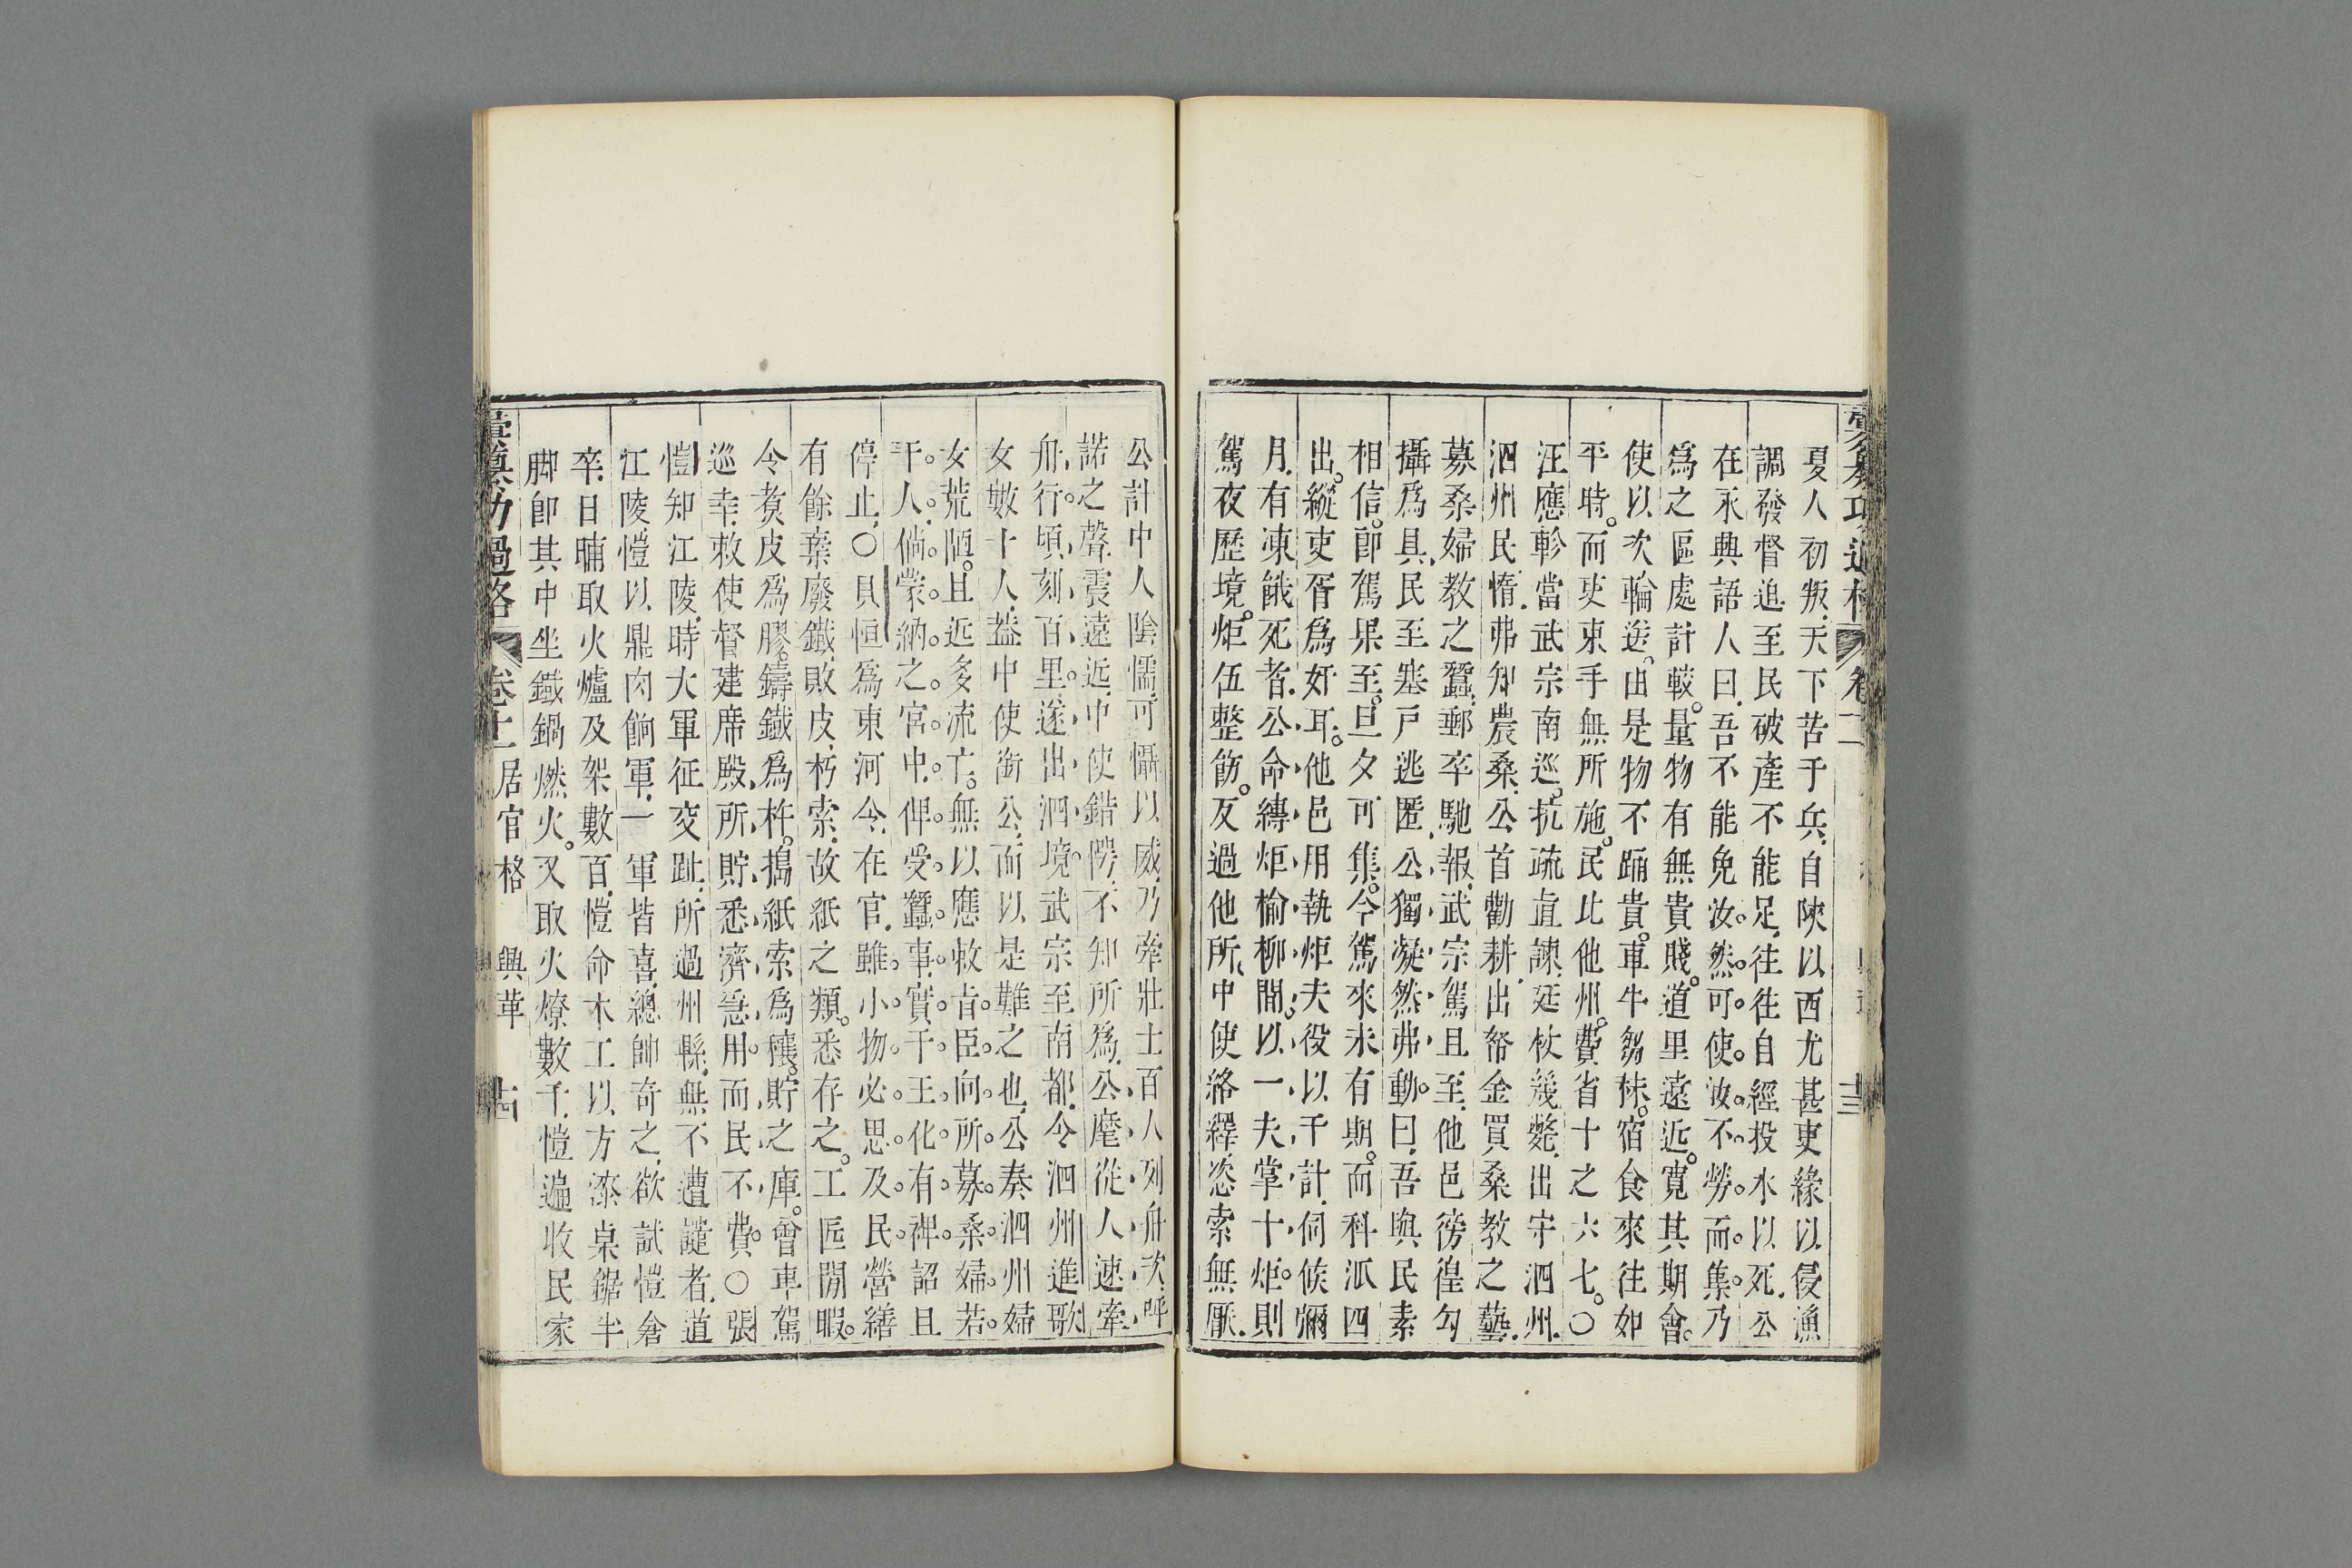 夏人初叛.天下苦于兵.自陝以西尤甚吏緣以侵漁
調發督迫至民破產不能足.往往自經投水以死.公
在永興語人曰.吾不能免汝。然。可。使。汝。不。勞。而。集。乃
爲之區處計較。量物有無貴賤。道里遠近。寬其期會。
使以次輸送。由是物不踊貴。車牛芻秣。宿食來往如
平時。而吏束手無所施。民比他州。費省十之六七。○
汪應軫當武宗南巡。抗疏直諫.廷杖幾斃.出守泗州.
泗州民.惰.弗知農桑.公首勸耕.出帑金買桑教之藝.
募桑婦教之蠶.郵卒馳報.武宗駕且至.他邑徬徨勾
攝爲具.民至塞戶逃匿.公獨凝然弗動。曰.吾與民素
相信。即駕果至。旦夕可集。今駕來未有期。而科派四
出。縱吏胥爲奸耳。他邑用執炬夫役以千計.伺候彌
月.有凍餓死者.公命縛炬榆柳間.以一夫掌十炬。則
駕夜歷境。炬伍整飭。反過他所.中使絡繹.恣索無厭.
公計中人陰懦.可懾以威.乃牽壯士百人.列舟次.呼
諾之聲.震遠近.中使錯愕.不知所爲.公麾從人速牽
舟行.頃刻百里.遂出泗境.武宗至南都.令泗州進歌
女數十人.蓋中使銜公.而以是難之也.公奏泗州婦
女荒陋。且近多流亡。無以應敕旨。臣。向。所。募。桑。婦。若。
干。人。倘。蒙。納。之。宮。中。俾。受。蠶。事。實。于。王。化。有。裨。詔且
停止.○貝恒爲東河令.在官.雖。小。物。必。思。及。民。營繕
有餘棄廢鐵.敗皮.朽索.故紙之類。悉存之。工匠閒暇。
令煑皮爲膠。鑄鐵爲杵。搗紙索爲穰。貯之庫。曾車駕
巡幸.敕使督建席殿.所貯悉濟急用。而民不費。○張
愷知江陵.時大軍征交趾.所過州縣.無不遭譴者.道
江陵.愷以鼎肉餉軍.一軍皆喜.總帥奇之.欲試愷倉
卒.日晡取火爐及架數百.愷命木工以方漆桌鋸半
脚.即其中坐鐵鍋燃火。又取火燎數千.愷遍收民家
彙纂功過格 卷十二 居官格 興革 十四